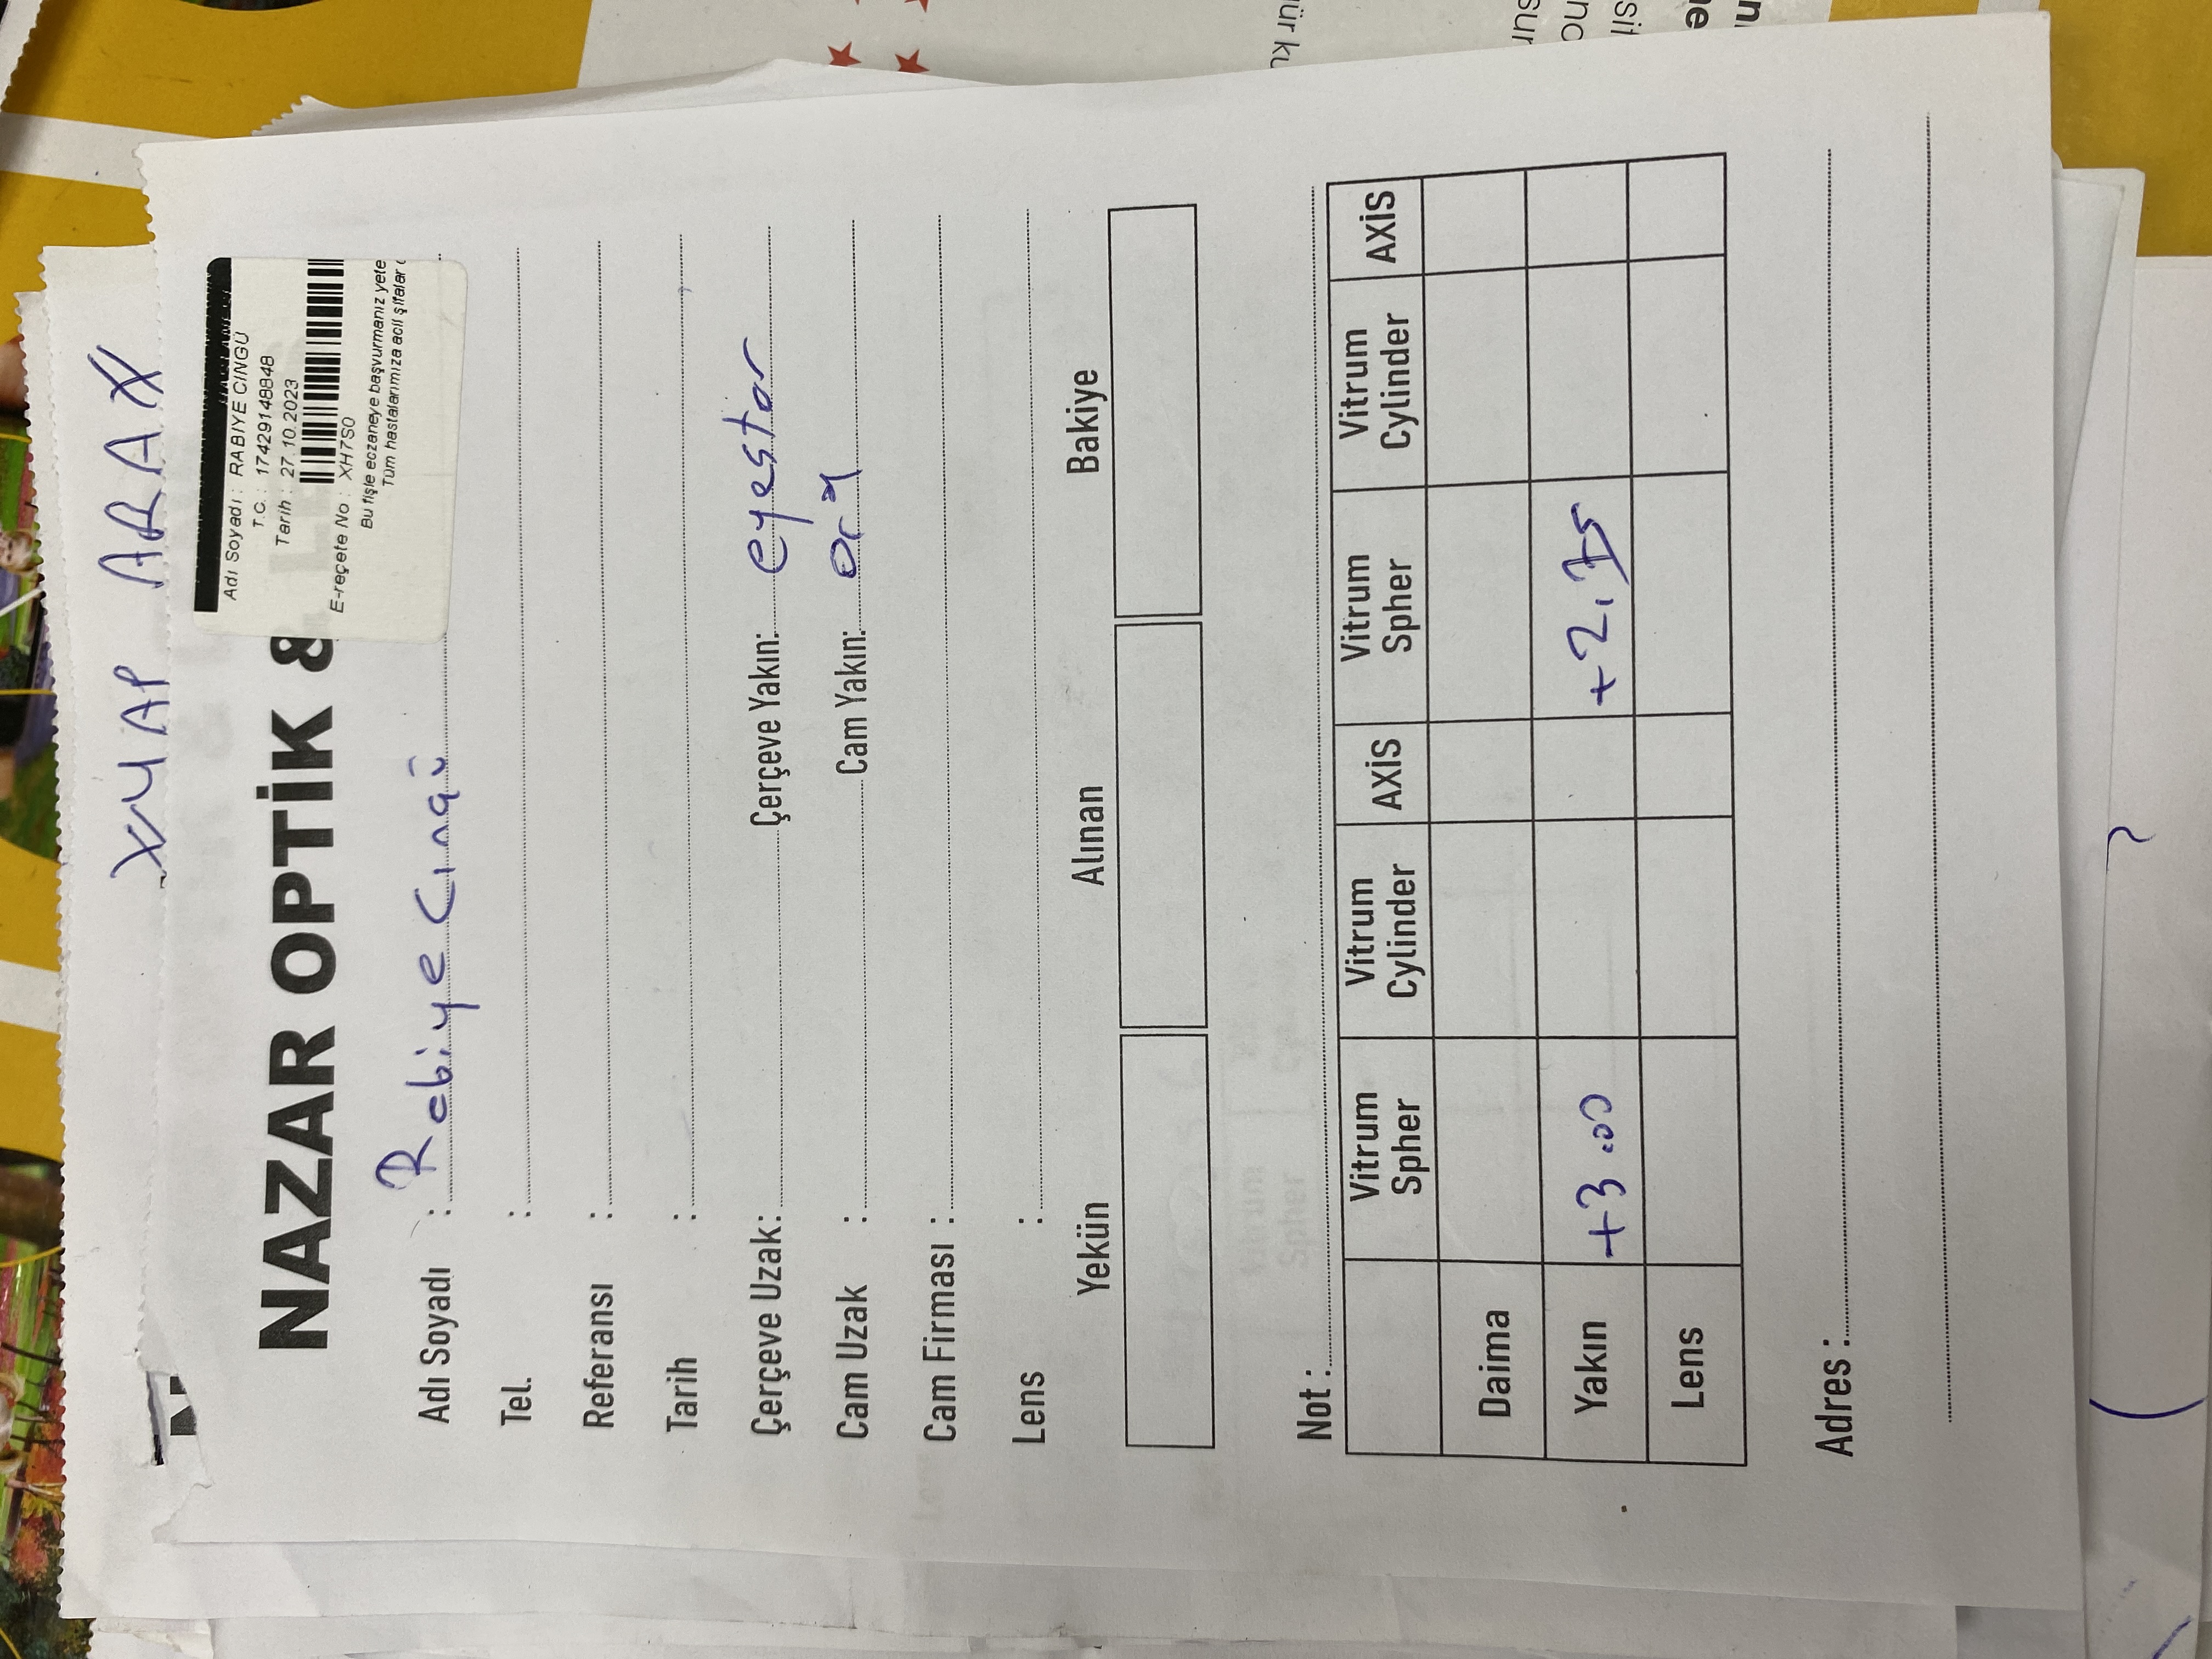 XYAP ARAX
NAZAR OPTİK &
Adı Soyadı : RABİYE CINGÜ
T.C. : 17429148848
Tarih : 27.10.2023
E-reçete No : XH7S0
Bu fişle eczaneye başvurmanız yete
Tüm hastalarımıza acil şifalar
Adı Soyadı : Rabiye Cıngü
Tel. :
Referansı :
Tarih :
Çerçeve Uzak: Çerçeve Yakın: eyestar
Cam Uzak : Cam Yakın:
Cam Firması :
Lens :
Yekün Alınan Bakiye
Not :
Vitrum Spher Vitrum Cylinder AXİS Vitrum Spher Vitrum Cylinder AXİS
Daima
Yakın +3.00 +2,75
Lens
Adres :
ür ku